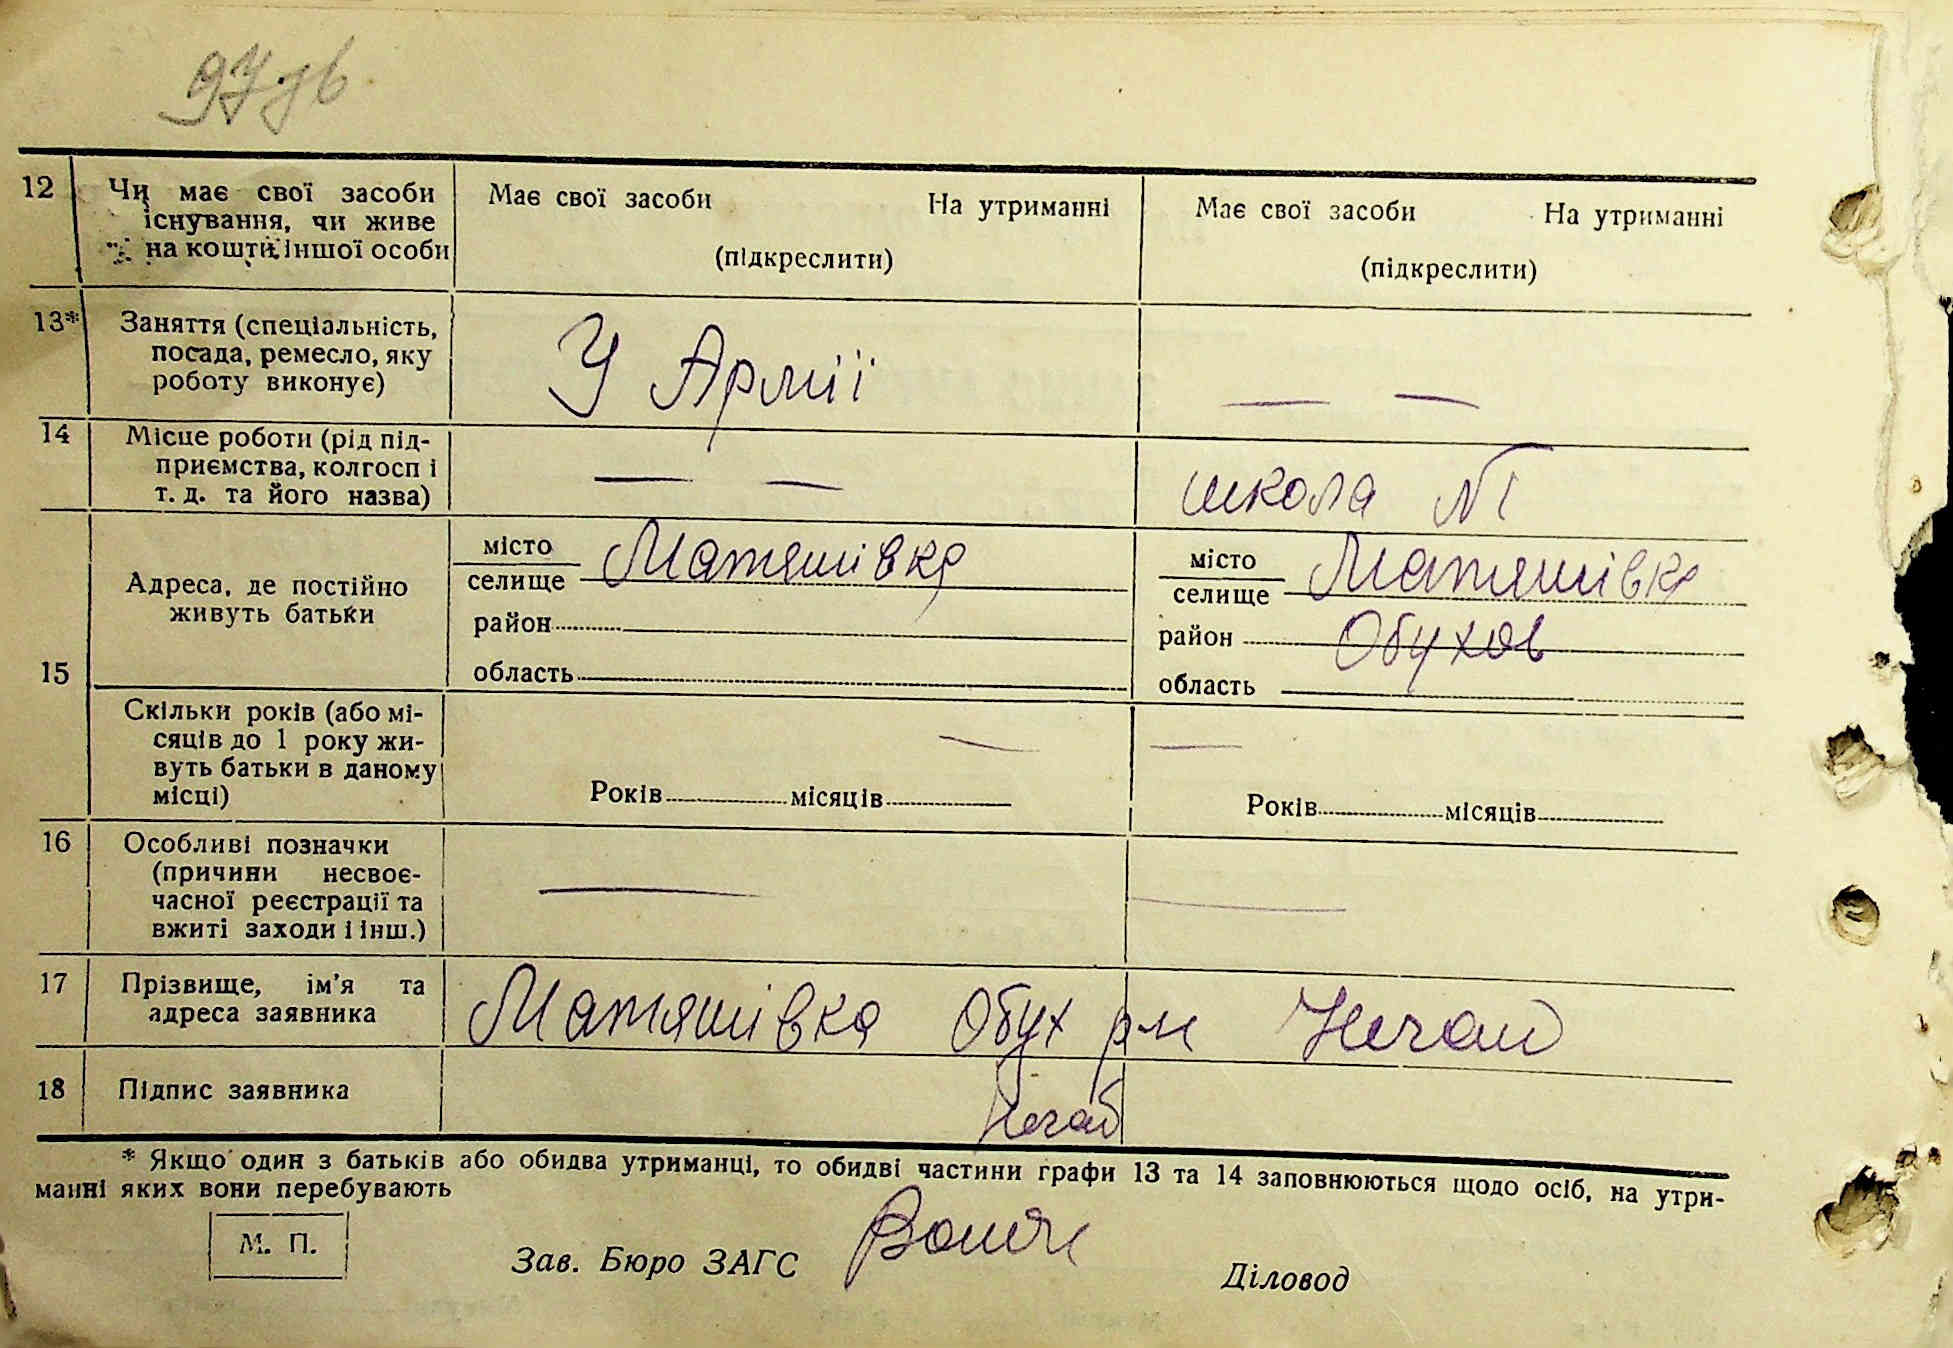 97 зв
12 Чи має свої засоби існування, чи живе на кошти іншої особи
Має свої засоби На утриманні
(підкреслити)
Має свої засоби На утриманні
(підкреслити)
13* Заняття (спеціальність,
посада, ремесло, яку
роботу виконує)
У Армії
— —
14 Місце роботи (рід під-
приємства, колгосп і
т. д. та його назва)
— —
школа №1
15
Адреса, де постійно
живуть батьки
місто
селище Матяшівка
район
область
місто
селище Матяшівка
район Обухов
область
Скільки років (або мі-
сяців до 1 року жи-
вуть батьки в даному
місці)
—
Років місяців
—
Років місяців
16 Особливі позначки
(причини несвоє-
часної реєстрації та
вжиті заходи і інш.)
—
—
17 Прізвище, ім'я та
адреса заявника
Матяшівка Обух р-н Нечай
18 Підпис заявника
Нечай
* Якщо один з батьків або обидва утриманці, то обидві частини графи 13 та 14 заповнюються щодо осіб, на утри-
манні яких вони перебувають
М. П.
Зав. Бюро ЗАГС
Діловод